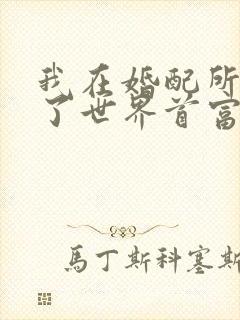 我在婚配所
了世界首富
馬丁斯科塞斯